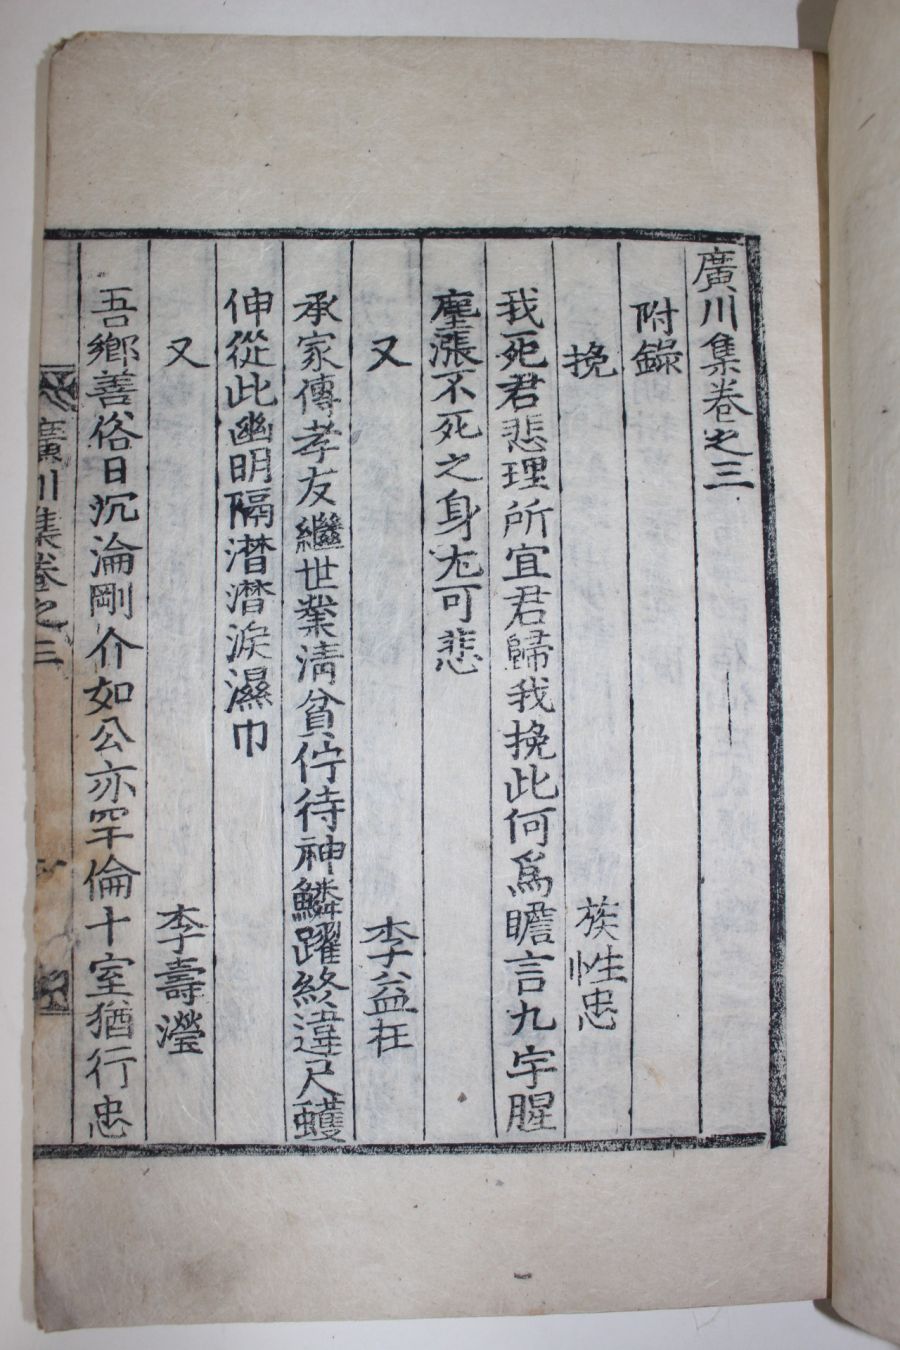 廣川集卷之三
附錄
挽 族性忠
我死君悲理所宜君歸我挽此何爲瞻言九宇腥
塵漲不死之身尤可悲
又 李益柱
承家傳孝友繼世業淸貧佇待神鱗躍終違尺蠖
伸從此幽明隔潸潸淚濕巾
又 李壽瀅
吾鄕善俗日沉淪剛介如公亦罕倫十室猶行忠
廣川集卷之三